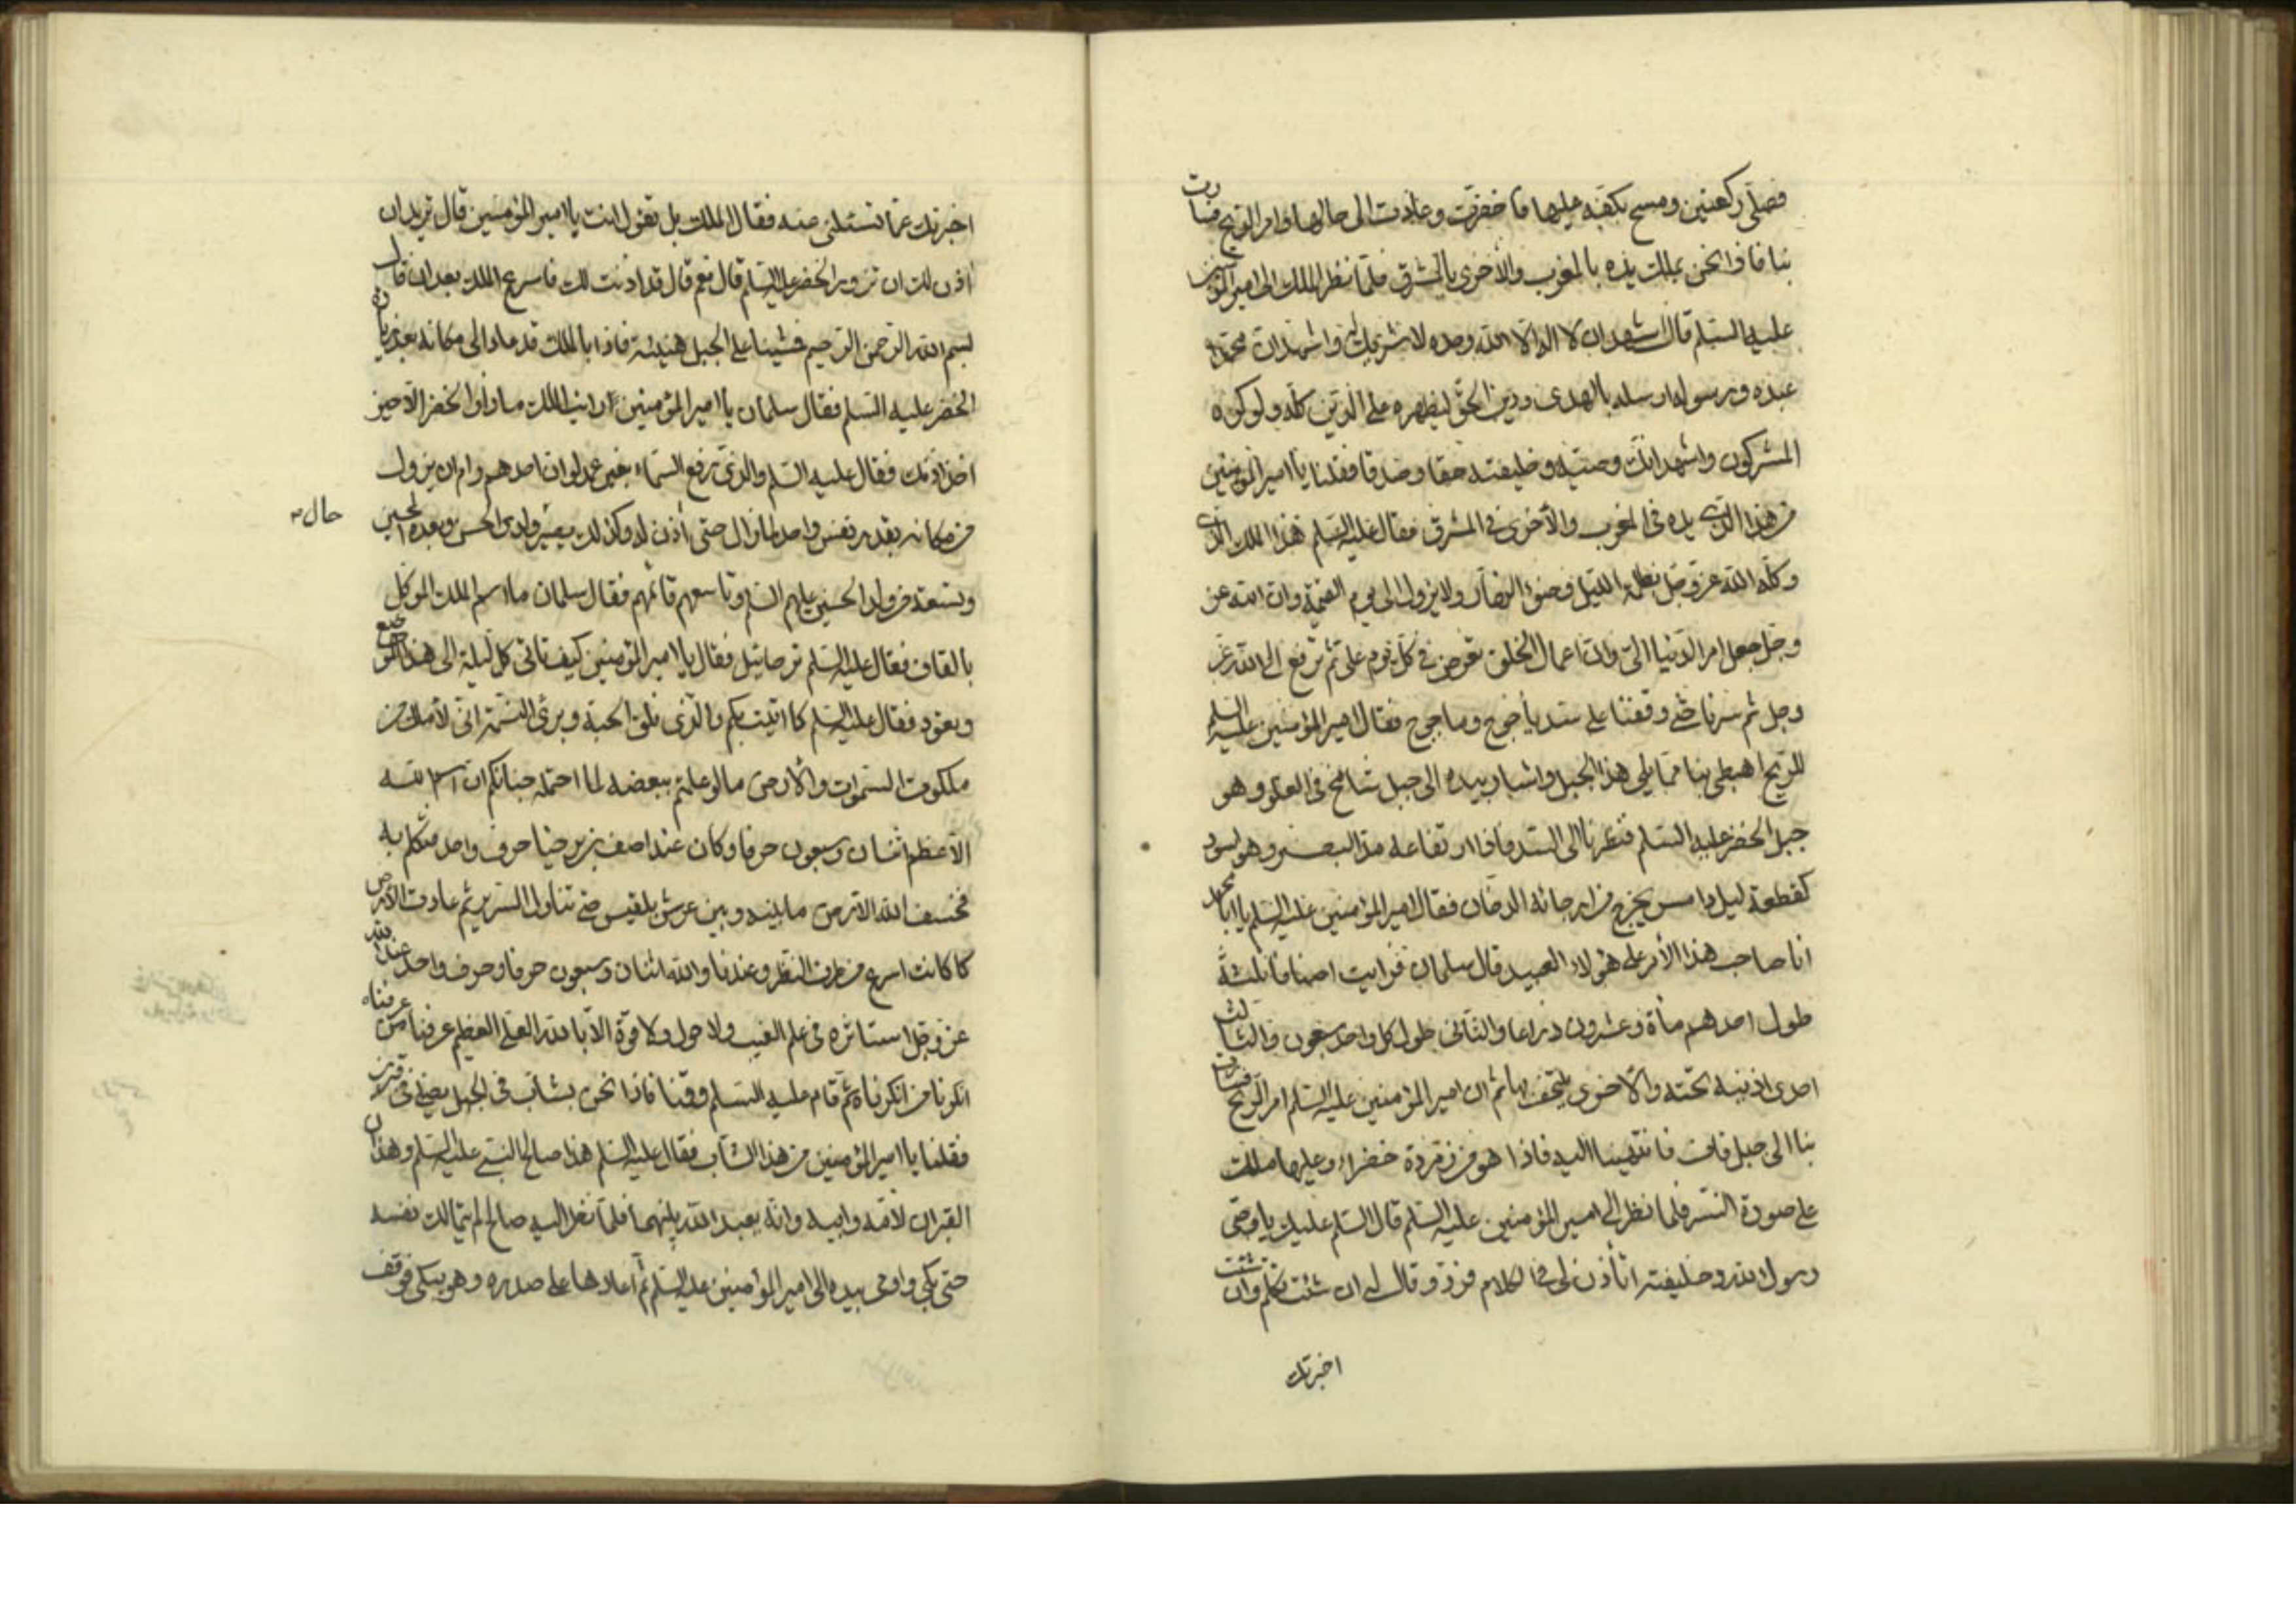 فصلى ركعتين ومسح بكفه عليها فاخضرت وعادت الى حالها وامر الريح فسارت
بنا فاذا نحن بملك يده بالمغرب والأخرى بالمشرق فلما نظر الملك الى امير المؤمنين
عليه السلم قال اشهد ان لا اله الا الله وحده لا شريك له واشهد ان محمدا
عبده ورسوله ارسله بالهدى ودين الحق ليظهره على الدين كله ولو كره
المشركون واشهد انك وصيه وخليفته حقا وصدقا فقلنا يا امير المؤمنين
من هذا الذي يده في المغرب والأخرى في المشرق فقال عليه السلم هذا الملك الذي
وكله الله عز وجل بظلمة الليل وضوء النهار ولا يزول الى يوم القيمة وان الله عز
وجل جعل امر الدنيا الي وان اعمال الخلق تعرض في كل يوم علي ثم ترفع الى الله عز
وجل ثم سرنا حتى وقفنا على سد يأجوج ومأجوج فقال امير المؤمنين عليه السلم
للريح اهبطي بنا مما يلي هذا الجبل واشار بيده الى جبل شامخ في العلو وهو
جبل الخضر عليه السلم فنظرنا الى السد فاذا ارتفاعه مد البصر وهو اسود
كقطعة ليل دامس يخرج من ارجائه الدخان فقال امير المؤمنين عليه السلم يا ابا محمد
انا صاحب هذا الأمر على هؤلاء العبيد قال سلمان فرايت اصنافا ثلثة
طول احدهم مأة وعشرون ذراعا والثاني طول كل واحد سبعون والثالث
احدى اذنيه تحته والاخرى يلتحف بها ثم ان امير المؤمنين عليه السلم امر الريح فسارت
بنا الى جبل قاف فانتهينا اليه فاذا هو من زمردة خضراء وعليها ملك
على صورة النسر فلما نظر الى امير المؤمنين عليه السلم قال السلم عليك يا وصى
رسول الله وخليفته اتأذن لى في الكلام فرد وقال له ان شئت تكلم وان شئت
اخبرتك
اخبرتك عما تسئلني عنه فقال الملك بل تقول انت يا امير المؤمنين قال تريد ان
اذن لك ان تزور الخضر عليه السلم قال نعم قال قد اذنت لك فاسرع الملك بعد ان قال
بسم الله الرحمن الرحيم فمشينا على الجبل هنيئة فاذا بالملك قد عاد الى مكانه بعد زيارة
الخضر عليه السلم فقال سلمان يا امير المؤمنين رايت الملك ما زار الخضر الا حين
اخذ اذنك فقال عليه السلم والذي رفع السماء بغير عمد لو ان احدهم رام ان يزول
من مكانه بقدر نفس واحد لما زال حتى أذن له وكذلك يصير ولدى الحسن وبعده الحسين
حال
وتسعة من ولد الحسين عليهم السلم وتاسعهم قائمهم فقال سلمان ما اسم الملك الموكل
بالقاف فقال عليه السلم ترحائيل فقال يا امير المؤمنين كيف تاتى كل ليلة الى هذا الموضع
وتعود فقال عليه السلم كما اتيت بكم والذي فلق الحبة وبرئ النسمة انى لأملك من
ملكوت السموات والأرض ما لو علمتم ببعضه لما احتمله جنانكم ان اسم الله
الأعظم اثنان وسبعون حرفا وكان عند اصف بن برخيا حرف واحد فتكلم به
فخسف الله الأرض ما بينه وبين عرش بلقيس حتى تناول السرير ثم عادت الأرض
كما كانت اسرع من طرف النظر وعندنا والله اثنان وسبعون حرفا وحرف واحد عند الله
عز وجل استاثره في علم الغيب ولا حول ولا قوة الا بالله العلى العظيم عرفنا من عرفنا
وانكرنا من انكرنا ثم قام عليه السلم وقمنا فاذا نحن بشاب في الجبل يصلى بين قبرين
فقلنا يا امير المؤمنين من هذا الشاب فقال عليه السلم هذا صالح النبي عليه السلم وهذان
القبران لأمه وابيه وانه يعبد الله بينهما فلما نظر اليه صالح لم يتمالك نفسه
حتى بكى واومى بيده الى امير المؤمنين عليه السلم ثم اعادها على صدره وهو يبكى فوقف